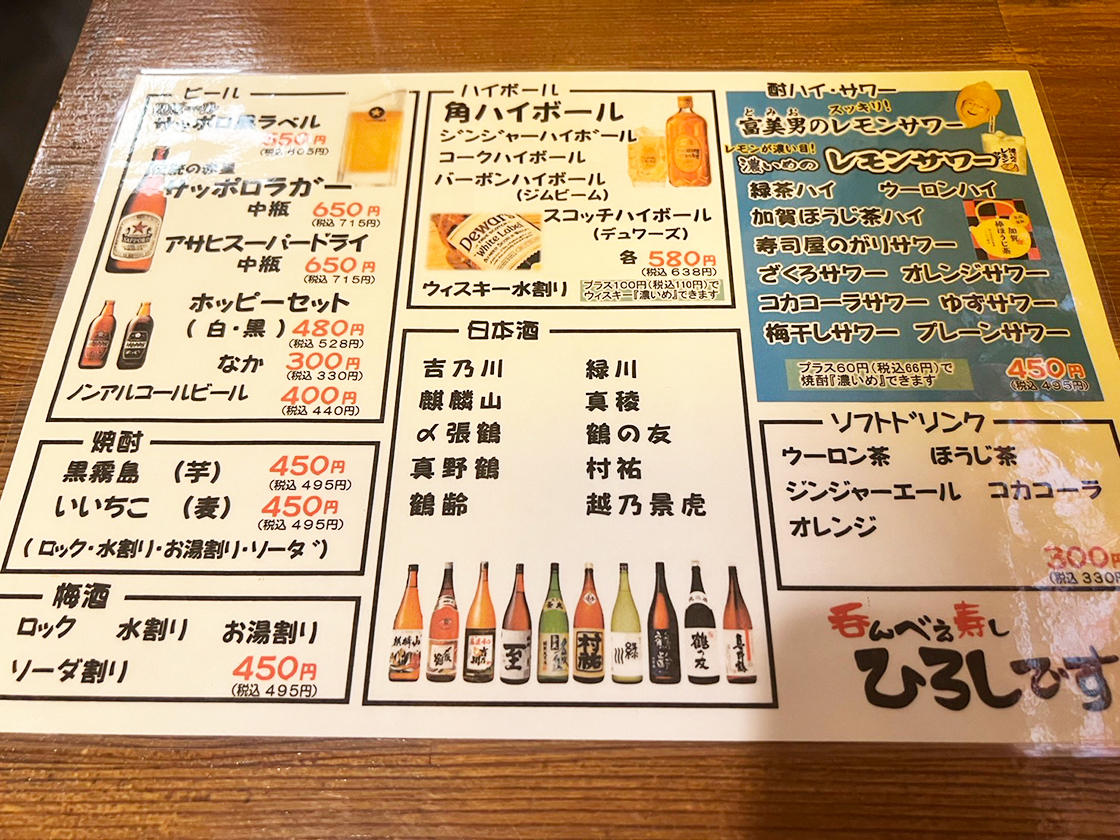 ビール
サッポロ黒ラベル
550円
(税込 605円)
伝統の赤星
サッポロラガー
中瓶 650円
(税込 715円)
アサヒスーパードライ
中瓶 650円
(税込 715円)
ホッピーセット
(白・黒) 480円
(税込 528円)
なか 300円
(税込 330円)
ノンアルコールビール 400円
(税込 440円)
焼酎
黒霧島 (芋) 450円
(税込 495円)
いいちこ (麦) 450円
(税込 495円)
(ロック・水割り・お湯割り・ソーダ)
梅酒
ロック 水割り お湯割り
ソーダ割り 450円
(税込 495円)
ハイボール
角ハイボール
ジンジャーハイボール
コークハイボール
バーボンハイボール
(ジムビーム)
スコッチハイボール
(デュワーズ)
Dewar's
White Label
各 580円
(税込 638円)
ウィスキー水割り
プラス100円(税込110円)で
ウィスキー『濃いめ』できます
日本酒
吉乃川 緑川
麒麟山 真稜
〆張鶴 鶴の友
真野鶴 村祐
鶴齢 越乃景虎
麒麟山
村祐
緑川
鶴の友
酎ハイ・サワー
スッキリ!
とみお
富美男のレモンサワー
レモンが濃い目!
濃いめの レモンサワー
緑茶ハイ ウーロンハイ
加賀ほうじ茶ハイ
加賀
棒ほうじ茶
寿司屋のがりサワー
ざくろサワー オレンジサワー
コカコーラサワー ゆずサワー
梅干しサワー プレーンサワー
プラス60円(税込66円)で
焼酎『濃いめ』できます
450円
(税込 495円)
ソフトドリンク
ウーロン茶 ほうじ茶
ジンジャーエール コカコーラ
オレンジ
300円
(税込 330円
呑んべえ寿し
ひろしです